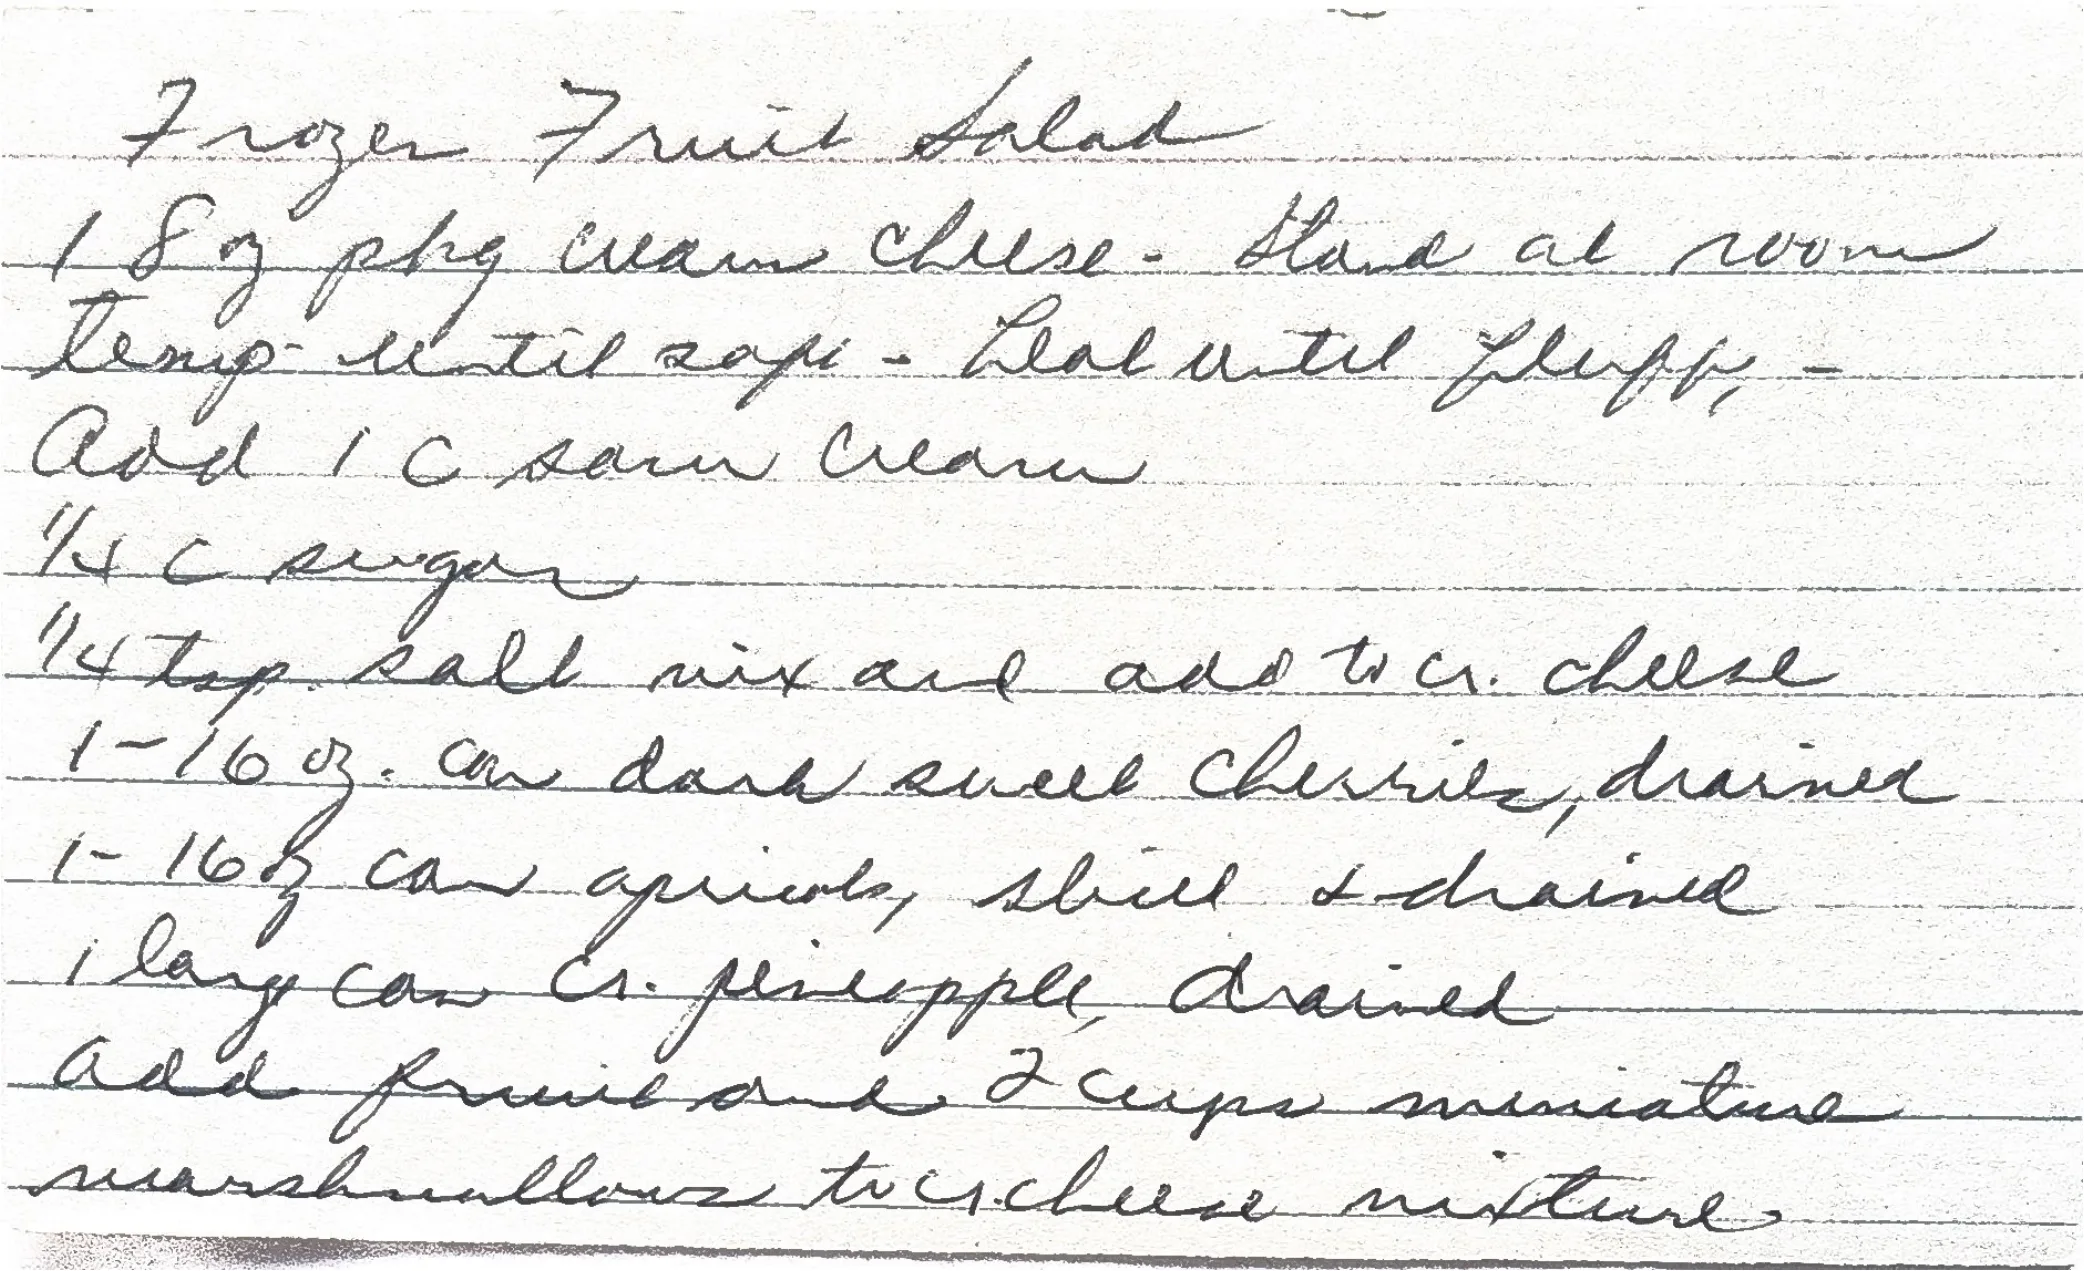 Frozen Fruit Salad
1 8 oz pkg cream cheese - Stand at room
temp until soft - beat until fluffy -
Add 1 C sour cream
1/4 C sugar
1/4 tsp. salt mix and add to cr. cheese
1-16 oz. can dark sweet cherries, drained
1-16 oz can apricots, sliced & drained
1 large can cr. pineapple, drained
add fruit and 2 cups miniature
marshmallows to cr. cheese mixture